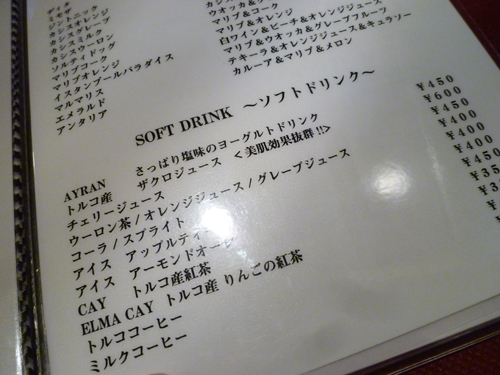 ディタ
ミモザ
ジントニック
カシスオレンジ
カシスグレープ
カシスミルク
カシスウーロン
ソルティドッグ
マリブコーク
マリブオレンジ
イスタンブールパラダイス
マルマリス
エメラルド
アンタリア
ウオッカ＆
マリブ＆コーク
マリブ＆オレンジ
白ワイン＆ピーチ＆オレンジジュース
マリブ＆ウオッカ＆グレープフルーツ
テキーラ＆オレンジジュース＆キュラソー
カルーア＆マリブ＆メロン
SOFT DRINK ～ソフトドリンク～
AYRAN さっぱり塩味のヨーグルトドリンク ¥450
トルコ産 ザクロジュース ＜美肌効果抜群!!＞ ¥600
チェリージュース ¥450
ウーロン茶/オレンジジュース/グレープジュース ¥400
コーラ/スプライト ¥400
アイス アップルティー ¥400
アイス アーモンドオーレ ¥450
CAY トルコ産紅茶 ¥35
ELMA CAY トルコ産 りんごの紅茶 ¥4
トルココーヒー ¥
ミルクコーヒー